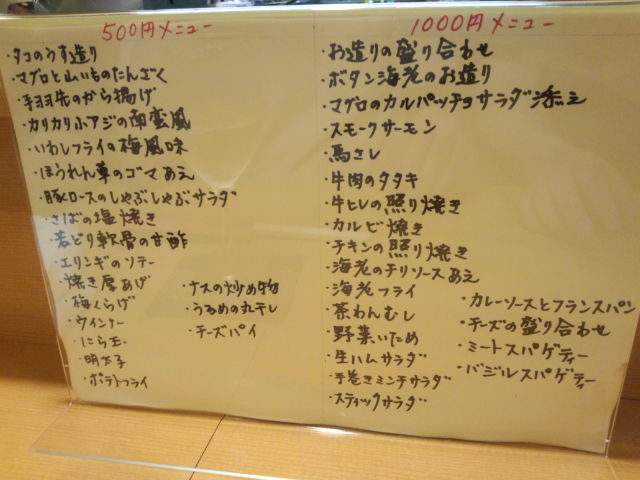 500円メニュー
・タコのうす造り
・マグロと山いものたんざく
・手羽先のから揚げ
・カリカリ小アジの南蛮風
・いわしフライの梅風味
・ほうれん草のゴマあえ
・豚ロースのしゃぶしゃぶサラダ
・さばの塩焼き
・若どり軟骨の甘酢
・エリンギのソテー
・焼き厚あげ
・梅くらげ
・ウインナー
・にら玉
・明太子
・ポテトフライ
・ナスの炒め物
・うるめの丸干し
・チーズパイ
1000円メニュー
・お造りの盛り合わせ
・ボタン海老のお造り
・マグロのカルパッチョサラダ添え
・スモークサーモン
・馬さし
・牛肉のタタキ
・牛ヒレの照り焼き
・カルビ焼き
・チキンの照り焼き
・海老のチリソースあえ
・海老フライ
・茶わんむし
・野菜いため
・生ハムサラダ
・手巻きミンチサラダ
・スティックサラダ
・カレーソースとフランスパン
・チーズの盛り合わせ
・ミートスパゲティー
・バジルスパゲティー